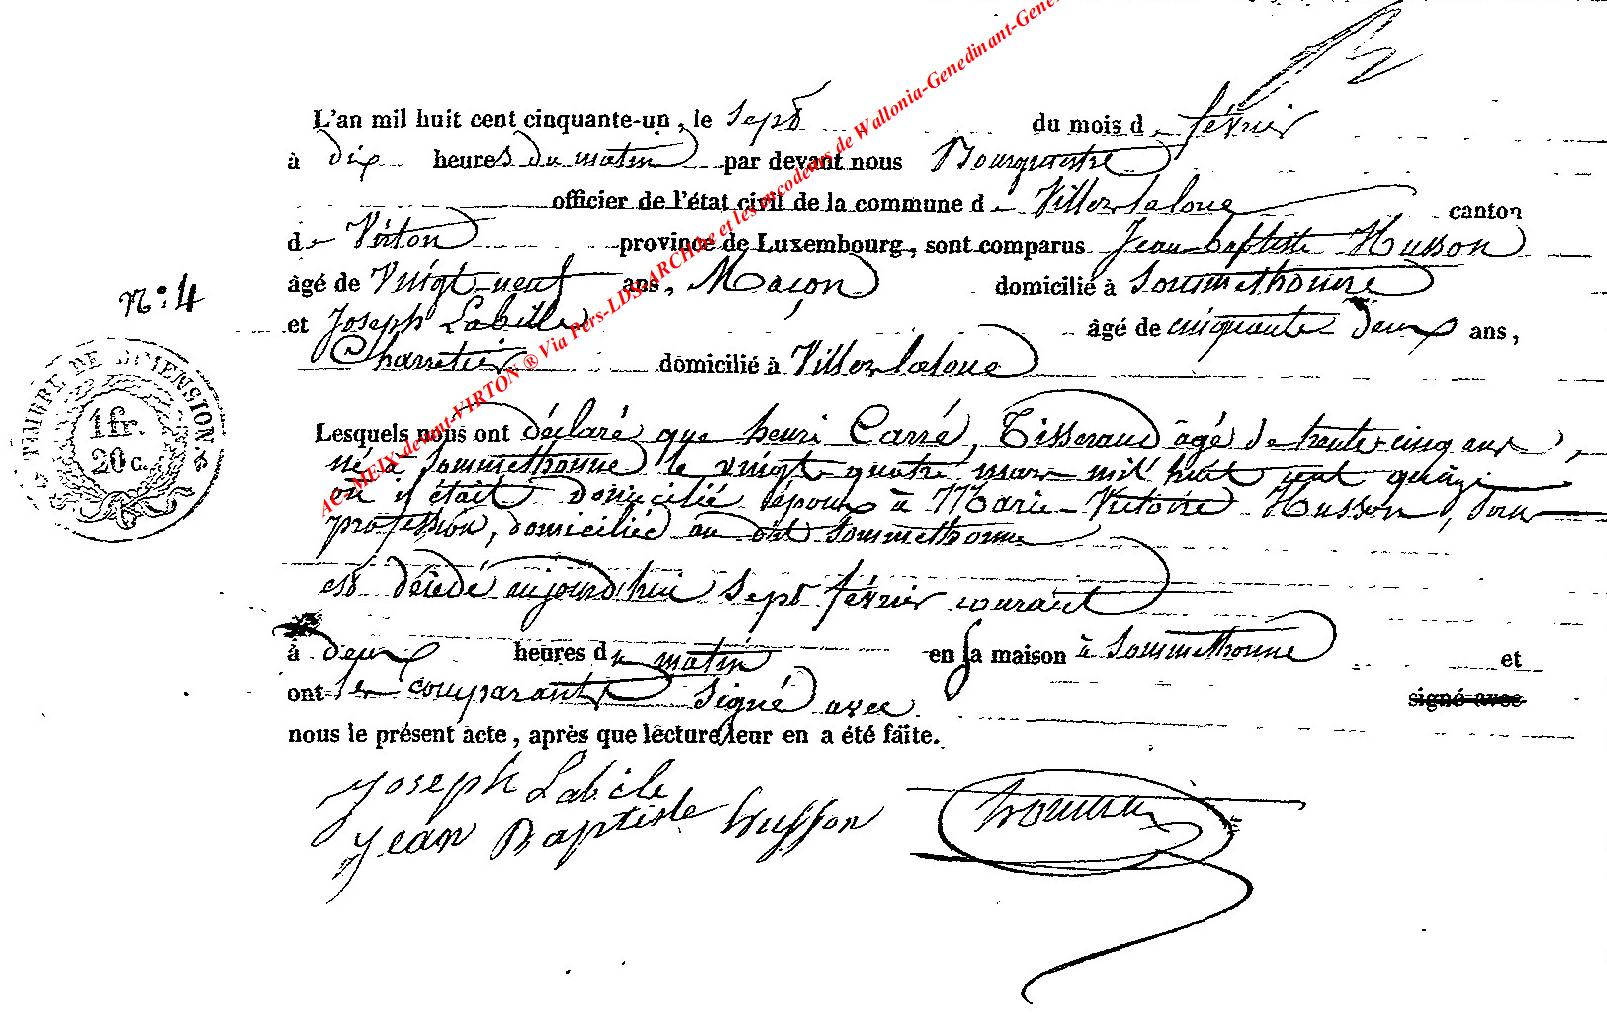 L'an mil huit cent cinquante-un, le sept du mois de février
à dix heures du matin par devant nous Bourgmestre
officier de l'état civil de la commune de Villerslaloue canton
de Virton province de Luxembourg, sont comparus Jean-baptiste Husson
âgé de Vuingt-neuf ans, Maçon domicilié à Sommethonne
N° 4
et Joseph Labille âgé de cinquante deux ans,
Charretier domicilié à Villerslaloue
TIMBRE DE DIMENSION
1 fr.
20 c.
Lesquels nous ont déclaré que henri Carré, Tisserand âgé de trente-cinq ans,
né à Sommethonne le vuingt quatre mars mil huit cent quinze
où il était domicilié époux à Marie-Victoire Husson, sans
profession, domiciliée au dit Sommethonne
est décédé aujourd'hui sept février courant
à deux heures du matin en sa maison à Sommethonne et
ont les comparants signé avec signé avec
nous le présent acte, après que lecture leur en a été faite.
Joseph Labile
Jean Baptiste husson
AC-MEIX-devant-VIRTON ® Via Pers-LDS-ARCHive et les encodeurs de Wallonia-Genedinant-Gene